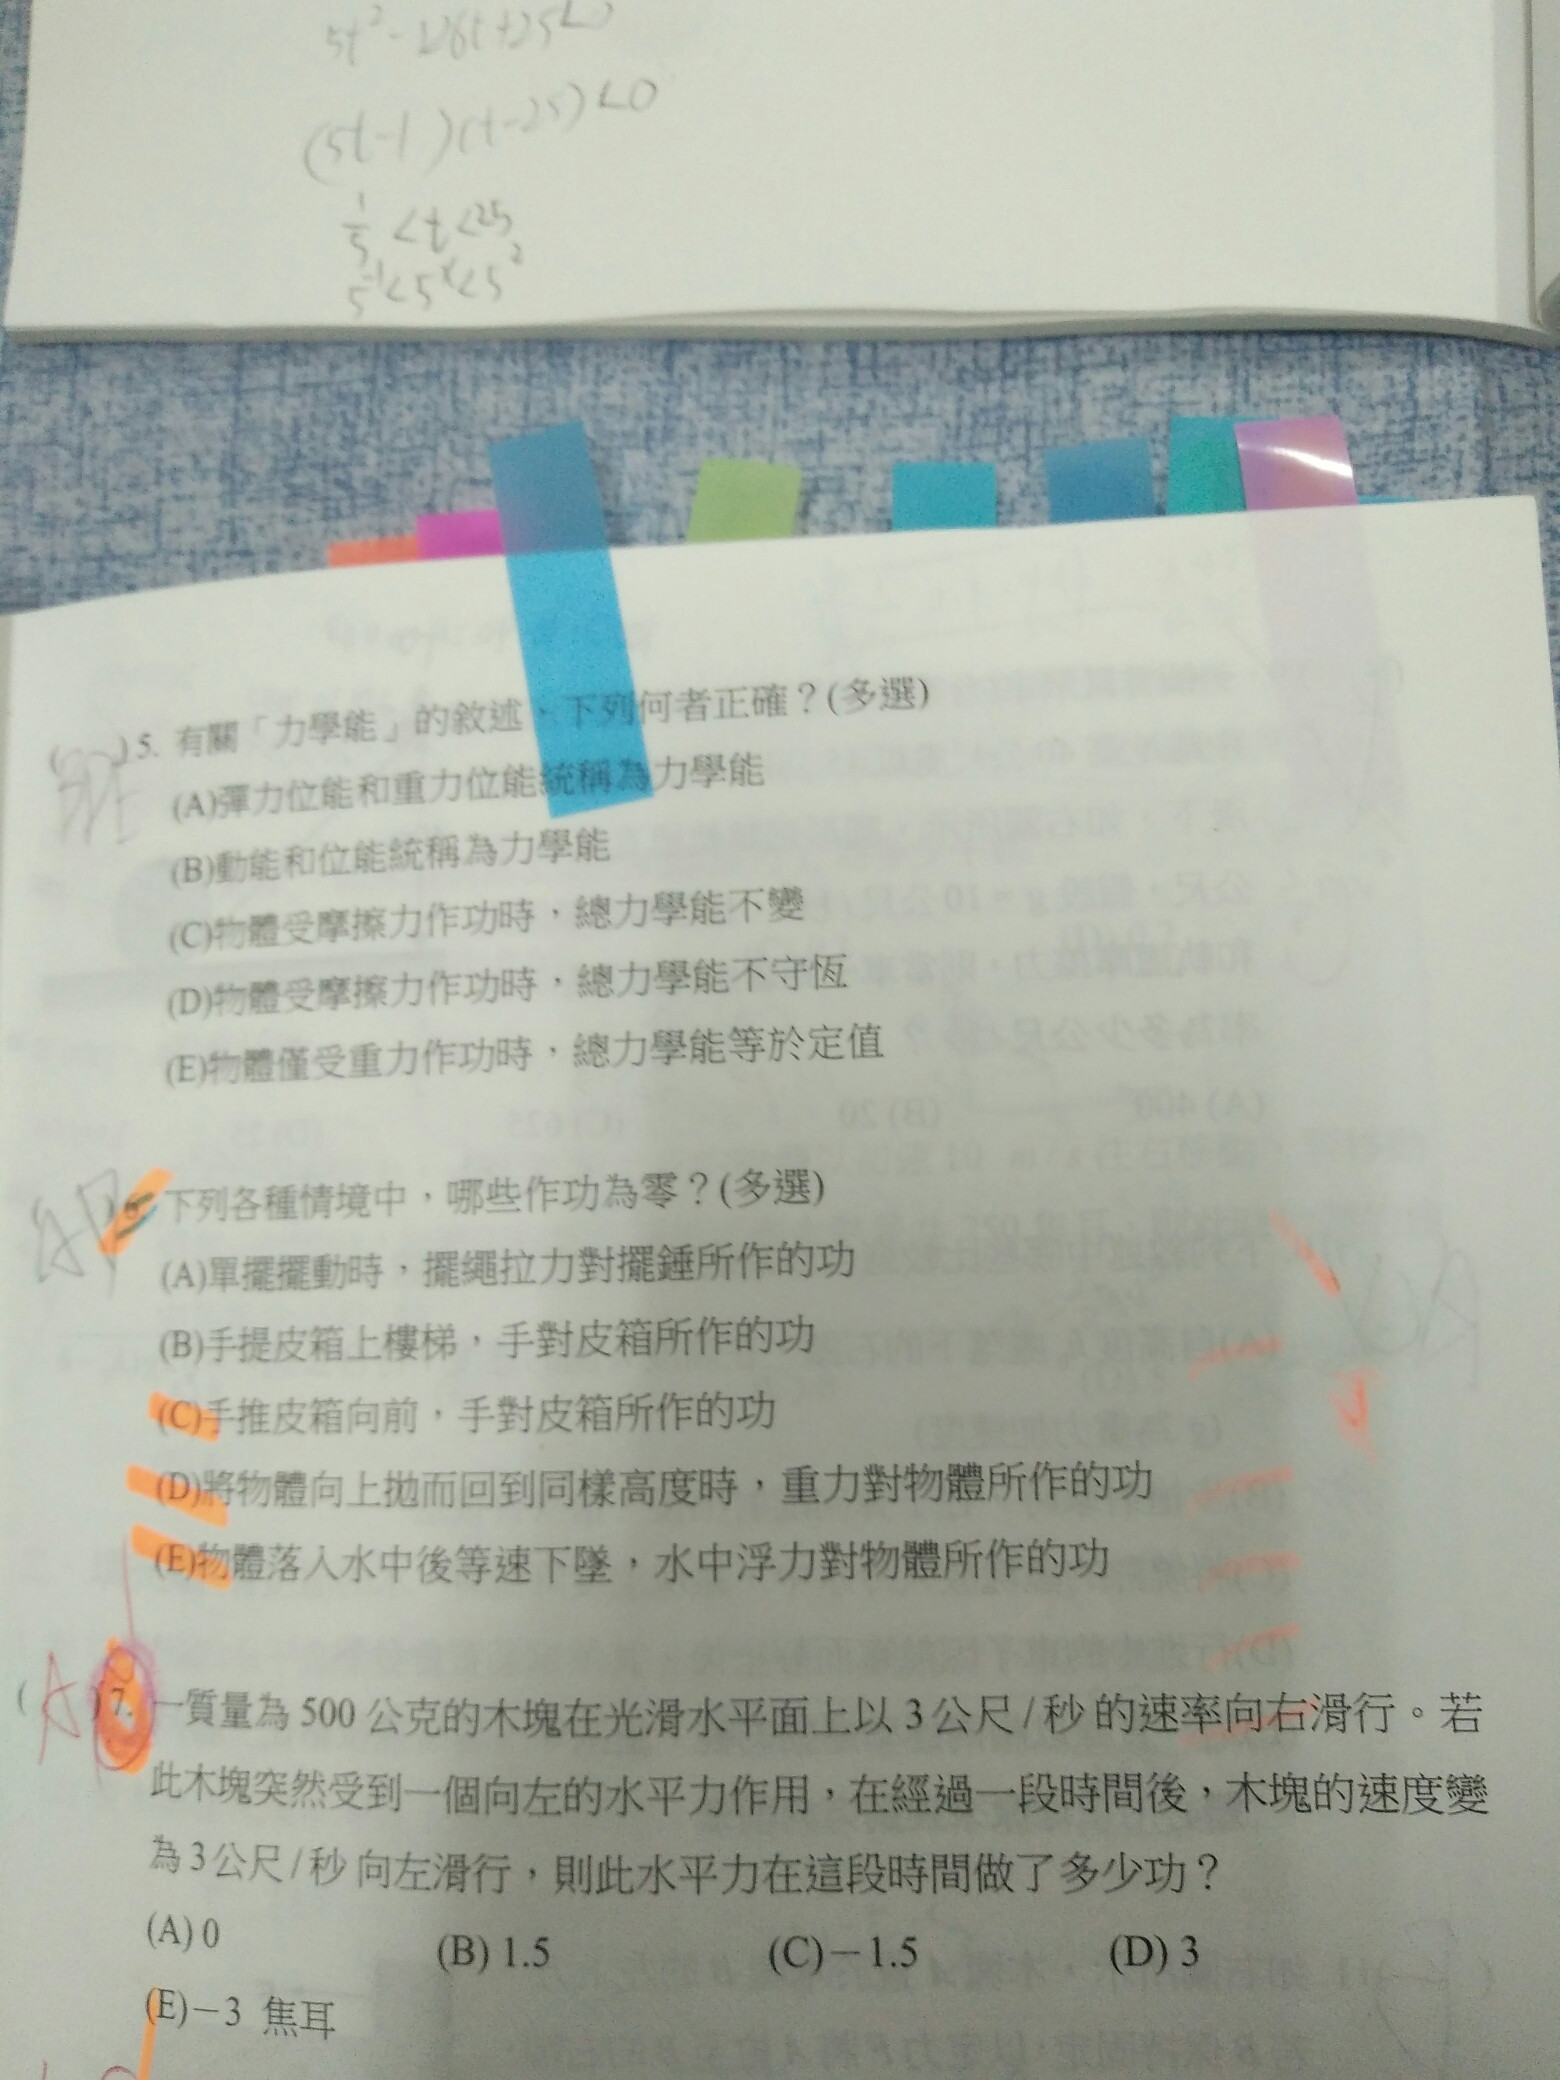 5t²-126t+25<0
(5t-1)(t-25)<0
1/5<t<25
5⁻¹<5ˣ<5²
BDE )5. 有關「力學能」的敘述，下列何者正確？(多選)
(A)彈力位能和重力位能統稱為力學能
(B)動能和位能統稱為力學能
(C)物體受摩擦力作功時，總力學能不變
(D)物體受摩擦力作功時，總力學能不守恆
(E)物體僅受重力作功時，總力學能等於定值
AD 6. 下列各種情境中，哪些作功為零？(多選)
(A)單擺擺動時，擺繩拉力對擺錘所作的功
(B)手提皮箱上樓梯，手對皮箱所作的功
(C)手推皮箱向前，手對皮箱所作的功
(D)將物體向上拋而回到同樣高度時，重力對物體所作的功
(E)物體落入水中後等速下墜，水中浮力對物體所作的功
( A )7. 一質量為 500 公克的木塊在光滑水平面上以 3 公尺/秒 的速率向右滑行。若
此木塊突然受到一個向左的水平力作用，在經過一段時間後，木塊的速度變
為 3 公尺/秒 向左滑行，則此水平力在這段時間做了多少功？
(A) 0 (B) 1.5 (C)－1.5 (D) 3
(E)－3 焦耳